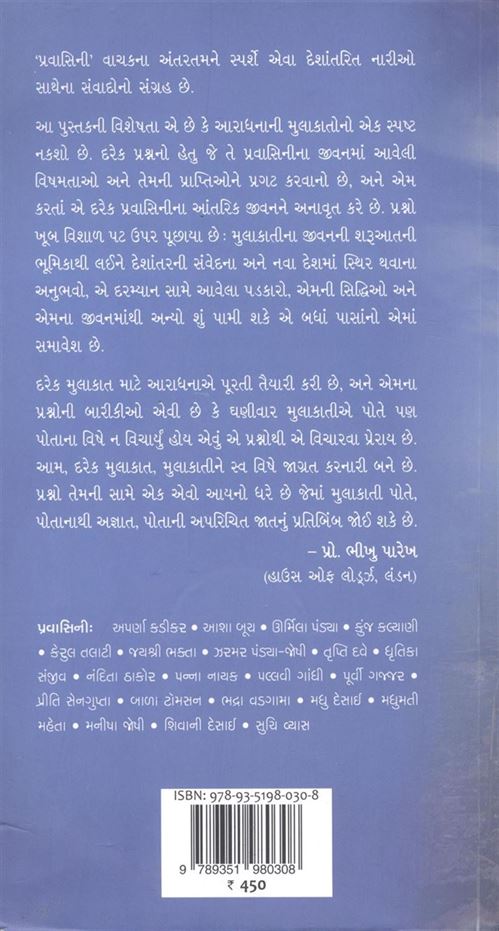 'પ્રવાસિની' વાચકના અંતરતમને સ્પર્શે એવા દેશાંતરિત નારીઓ
સાથેના સંવાદોનો સંગ્રહ છે.
આ પુસ્તકની વિશેષતા એ છે કે આરાધનાની મુલાકાતોનો એક સ્પષ્ટ
નકશો છે. દરેક પ્રશ્નનો હેતુ જે તે પ્રવાસિનીના જીવનમાં આવેલી
વિષમતાઓ અને તેમની પ્રાપ્તિઓને પ્રગટ કરવાનો છે, અને એમ
કરતાં એ દરેક પ્રવાસિનીના આંતરિક જીવનને અનાવૃત કરે છે. પ્રશ્નો
ખૂબ વિશાળ પટ ઉપર પૂછાયા છે : મુલાકાતીના જીવનની શરૂઆતની
ભૂમિકાથી લઈને દેશાંતરની સંવેદના અને નવા દેશમાં સ્થિર થવાના
અનુભવો, એ દરમ્યાન સામે આવેલા પડકારો, એમની સિદ્ધિઓ અને
એમના જીવનમાંથી અન્યો શું પામી શકે એ બધાં પાસાંનો એમાં
સમાવેશ છે.
દરેક મુલાકાત માટે આરાધનાએ પૂરતી તૈયારી કરી છે, અને એમના
પ્રશ્નોની બારીકીઓ એવી છે કે ઘણીવાર મુલાકાતીએ પોતે પણ
પોતાના વિષે ન વિચાર્યું હોય એવું એ પ્રશ્નોથી એ વિચારવા પ્રેરાય છે.
આમ, દરેક મુલાકાત, મુલાકાતીને સ્વ વિષે જાગ્રત કરનારી બને છે.
પ્રશ્નો તેમની સામે એક એવો આયનો ધરે છે જેમાં મુલાકાતી પોતે,
પોતાનાથી અજ્ઞાત, પોતાની અપરિચિત જાતનું પ્રતિબિંબ જોઈ શકે છે.
– પ્રો. ભીખુ પારેખ
(હાઉસ ઓફ લોર્ડ્ઝ, લંડન)
પ્રવાસિની: અપર્ણા કડીકર • આશા બૂચ • ઊર્મિલા પંડ્યા • કુંજ કલ્યાણી
• કેરુલ તલાટી • જયશ્રી ભક્તા • ઝરમર પંડ્યા-જોષી • તૃપ્તિ દવે • ધૃતિકા
સંજીવ • નંદિતા ઠાકોર • પન્ના નાયક • પલ્લવી ગાંધી • પૂર્વી ગજ્જર •
પ્રીતિ સેનગુપ્તા • બાળા ટૉમસન • ભદ્રા વડગામા • મધુ દેસાઈ • મધુમતી
મહેતા • મનીષા જોષી • શિવાની દેસાઈ • સુચિ વ્યાસ
ISBN: 978-93-5198-030-8
9 789351 980308
₹ 450